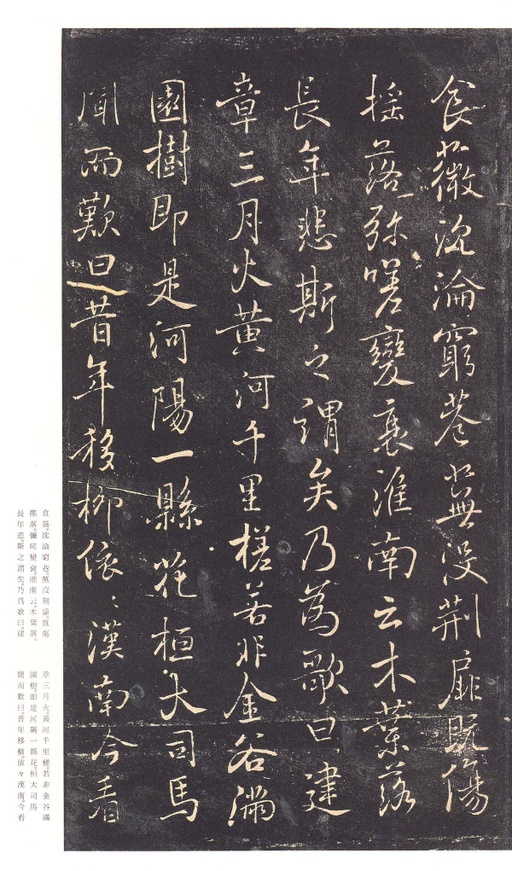 食薇沈淪窮巷蕪没荆扉既傷
揺落弥嗟變衰淮南云木葉落
長年悲斯之謂矣乃為歌曰建
章三月火黄河千里槎若非金谷满
園樹即是河陽一縣花桓大司馬
聞而歎曰昔年移柳依〻漢南今看
食薇。沈淪窮巷。蕪沒荆扉。既傷
搖落。彌嗟變衰。淮南云。木葉落。
長年悲。斯之謂矣。乃爲歌曰。建
章三月火。黃河千里槎。若非金谷滿
園樹。即是河陽一縣花。桓大司馬
聞而歎曰。昔年移柳。依々漢南。今看